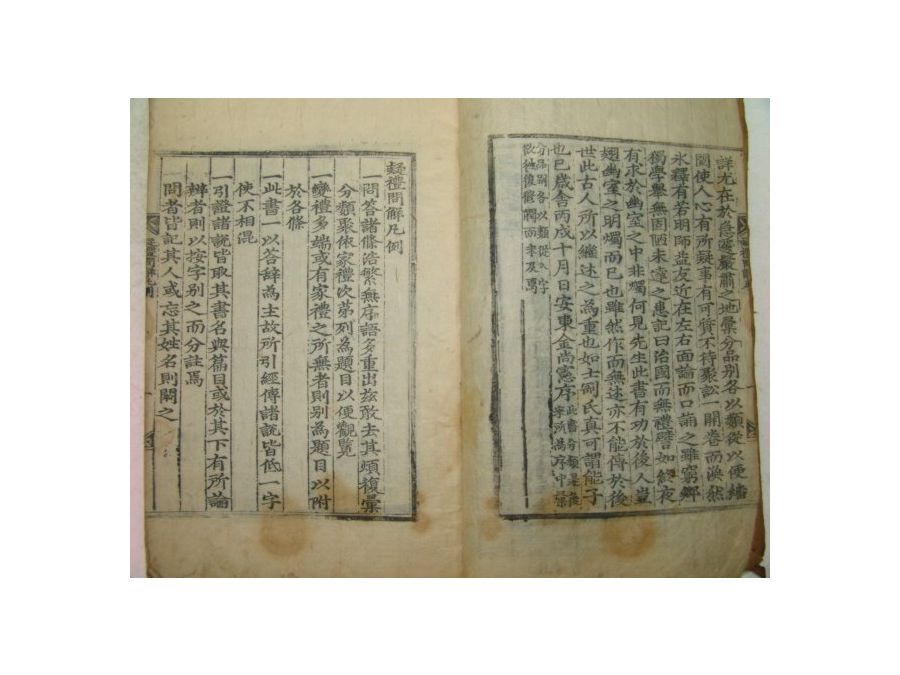 詳尤在於急遽嚴肅之地彙分品別各以類從以便繙
閱使人心有所疑事有可質不待聚訟一開卷而渙然
氷釋有若明師益友近在左右面論而口誦之雖窮鄉
獨學擧無固陋未達之患記曰治國而無禮譬如終夜
有求於幽室之中非燭何見先生此書有功於後人豈
翅幽室之明燭而已也雖然作而無述亦不能儕於後
世此古人所以繼述之爲重也如士剛氏真可謂能子
也已歲舍丙戌十月日安東金尙憲序
此書分類是後
來所爲序中彙
分品別各以類從八字
疑禮問解凡例
一問答諸條浩繁無序語多重出玆敢去其煩複彙
分類聚依家禮次第列爲題目以便觀覽
一變禮多端或有家禮之所無者則別爲題目以附
於各條
一此書一以答辭爲主故所引經傳諸說皆低一字
使不相混
一引證諸說皆取其書名與篇目或於其下有所論
辨者則以按字別之而分註焉
一問者皆記其人或忘其姓名則闕之